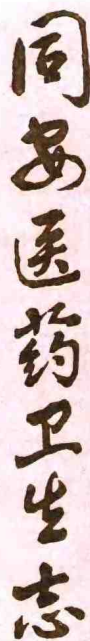 同安医药卫生志